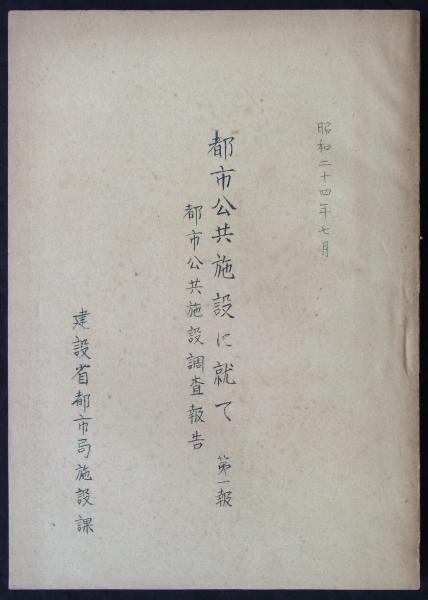 昭和二十四年七月
都市公共施設に就て 第一報
都市公共施設調査報告
建設省都市局施設課